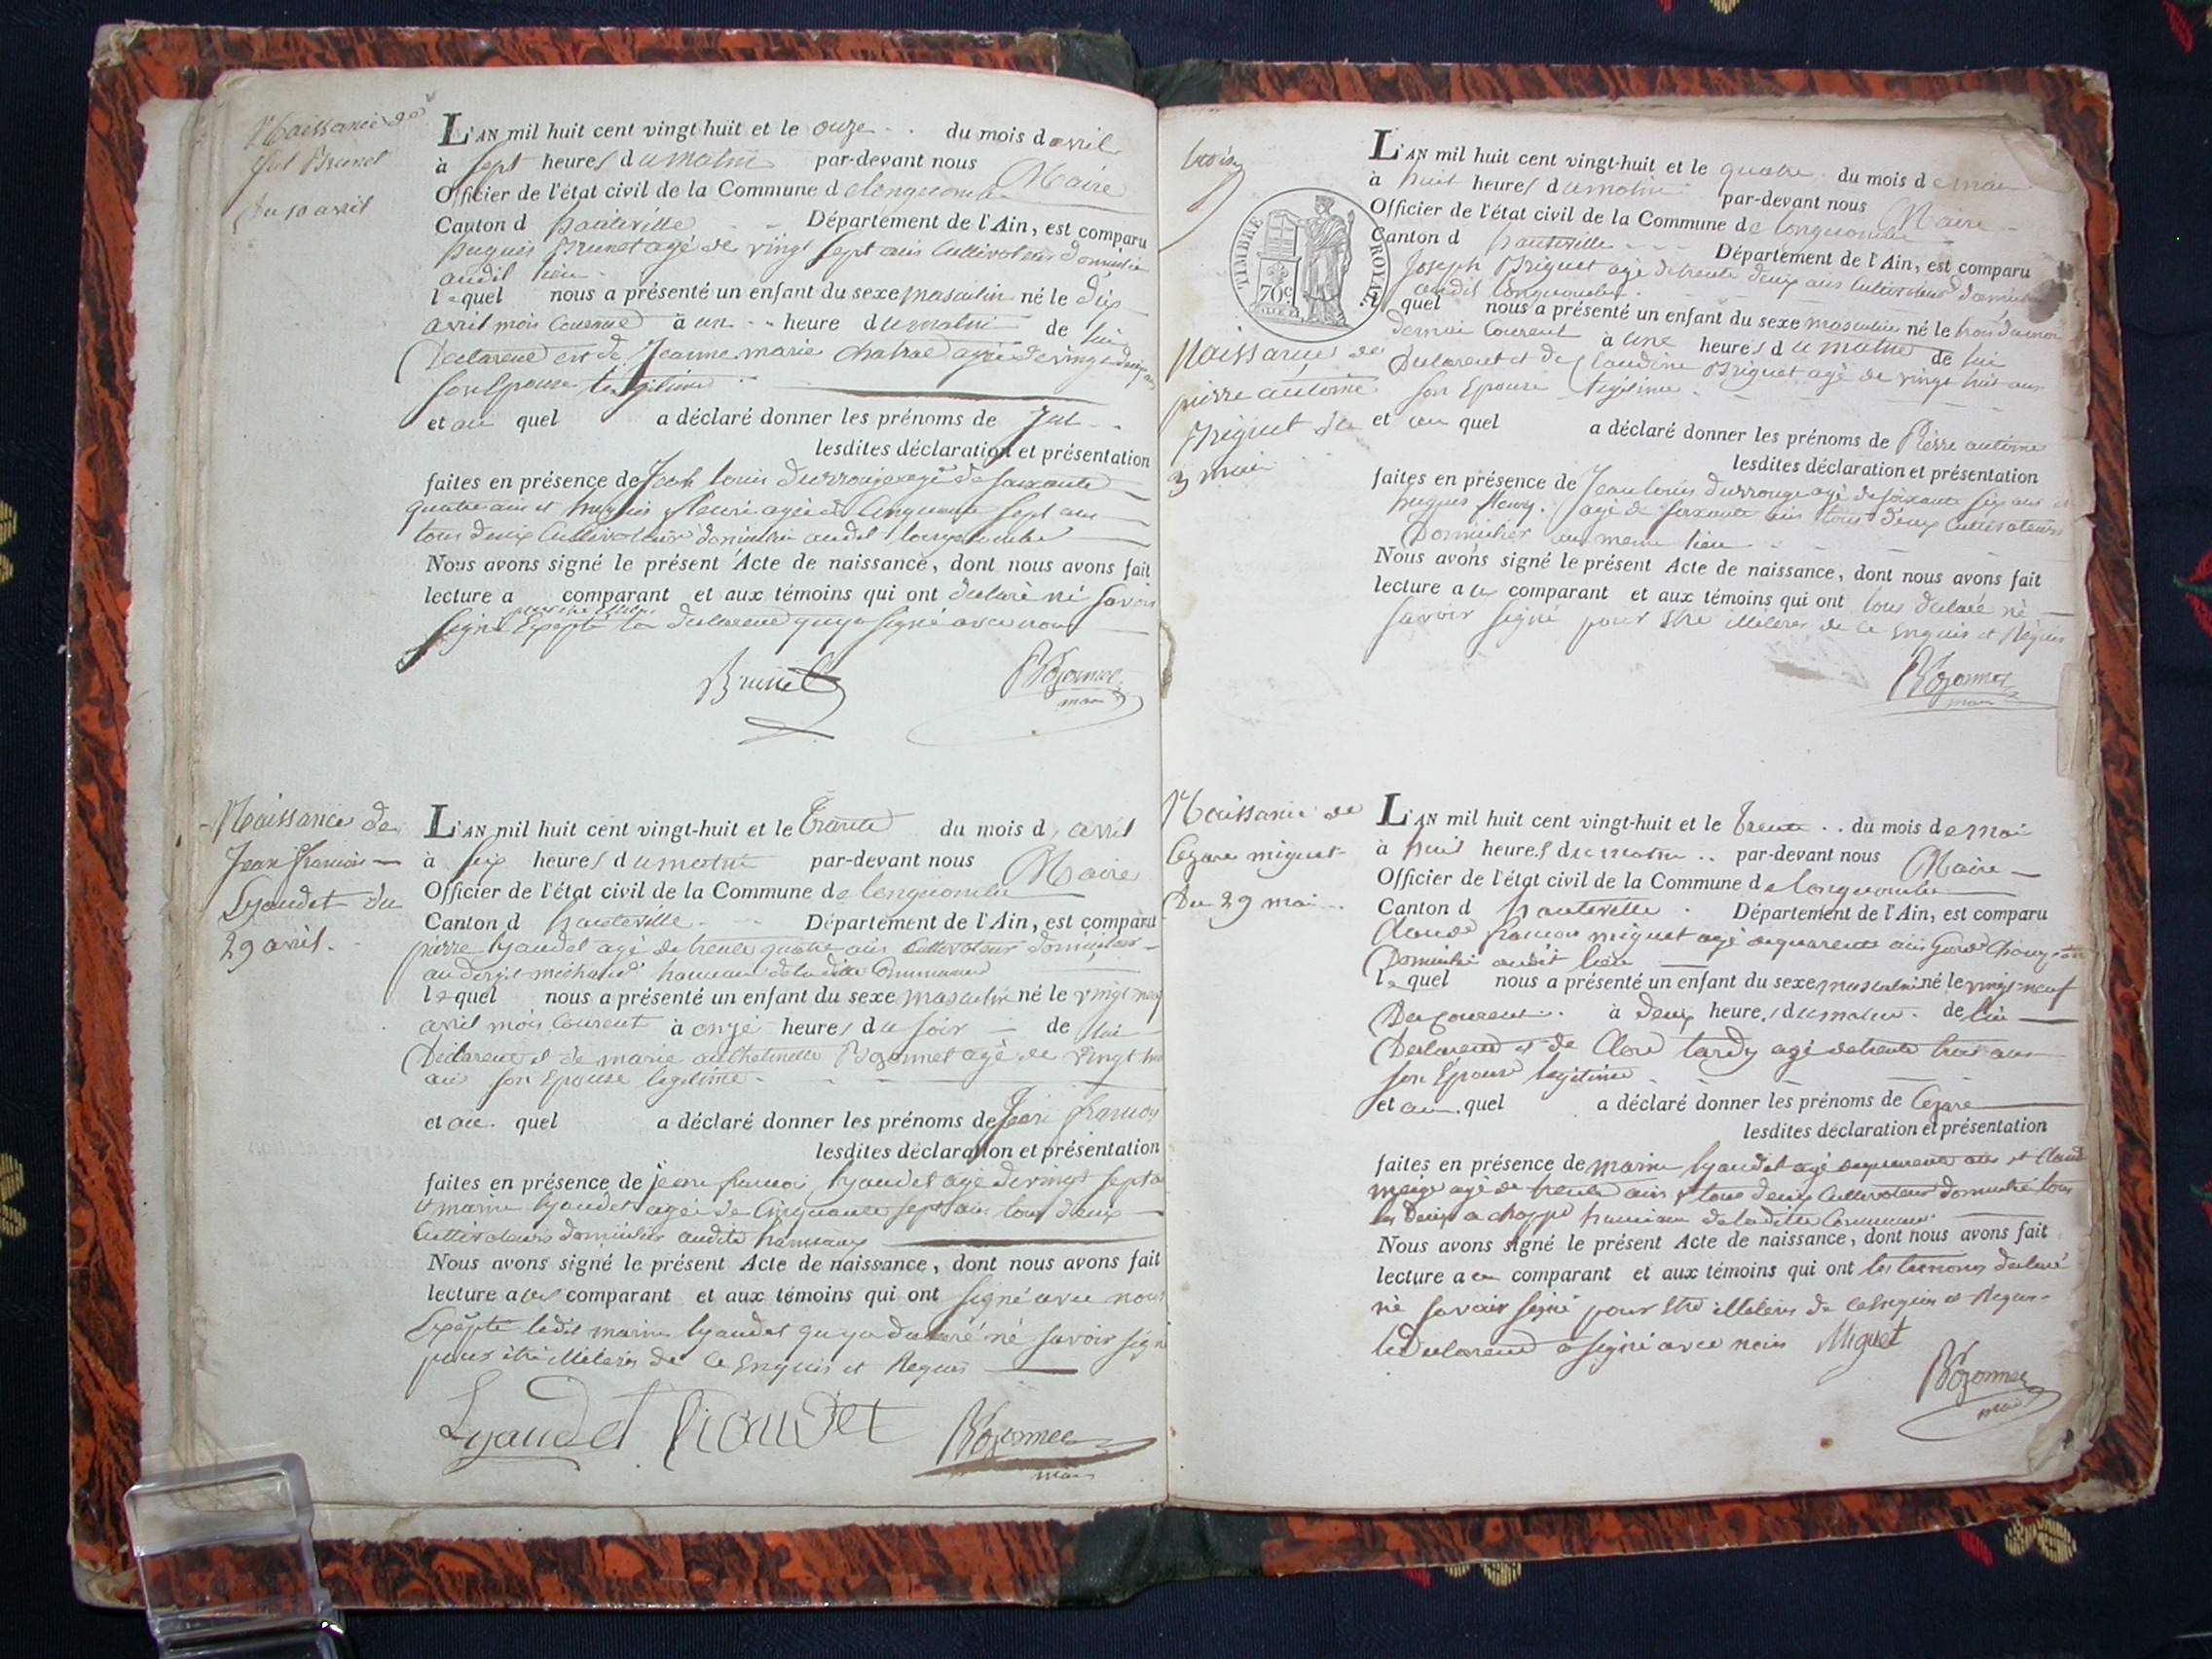 Naissance de
Jul Brunet
du 10 avril
L'AN mil huit cent vingt huit et le onze du mois d avril
à sept heures du matin par-devant nous Maire
Officier de l'état civil de la Commune de longecombe
Canton d hauteville Département de l'Ain, est comparu
hugues Brunet agé de vingt sept ans Cultivateur domicilié
audit lieu
lequel nous a présenté un enfant du sexe masculin né le dix
avril mois Courent à une heure du matin de lui
Declarent et de Jeanne marie agée de vingt deux ans
son Epouse legitime
et au quel a déclaré donner les prénoms de Jul
lesdites déclaration et présentation
faites en présence de Jean louis Durrouge agé de soixante
quatre ans et hugues fleuri agée de Cinquante sept ans
tous deux Cultivateurs domicilié audit longecombe
Nous avons signé le présent Acte de naissance, dont nous avons fait
lecture a comparant et aux témoins qui ont declaré né savoir
signé Exepté le declarent quy a signé avec nous
Brunet Bozonnet
maire
Naissance de
Jean francois
Lyaudet du
29 avril.
L'AN mil huit cent vingt-huit et le Trante du mois d avril
à six heures du matin par-devant nous Maire
Officier de l'état civil de la Commune de longecombe
Canton d hauteville Département de l'Ain, est comparu
pierre lyaudet agé de trente quatre ans Cultivateur domicilier
au hameau de ladite Commune
lequel nous a présenté un enfant du sexe masculin né le vingt neuf
avril mois Courent à onze heures du soir de lui
Declarent et de marie Bozonnet agé de vingt
ans son Epouse legitime
et au quel a déclaré donner les prénoms de Jean francois
lesdites déclaration et présentation
faites en présence de jean francois lyaudet agé de vingt sept ans
et marin lyaudet agée de Cinquante sept ans tous deux
Cultivateurs domicilier audit hameaux
Nous avons signé le présent Acte de naissance, dont nous avons fait
lecture a comparant et aux témoins qui ont signé avec nous
Exepté ledit marin lyaudet quy a declaré né savoir signé
pour être illiteré de Ce Enquis et Requis
Lyaudet Liaudet Bozonnet
maire
trois
TIMBRE ROYAL.
70c
Naissance de
pierre antoine
Briguet du
3 mai
L'AN mil huit cent vingt-huit et le quatre du mois de mai
à huit heures du matin par-devant nous Maire
Officier de l'état civil de la Commune de longecombe
Canton d hauteville Département de l'Ain, est comparu
Joseph Briguet agé de trente deux ans Cultivateur domicilié
audit longecombe
l quel nous a présenté un enfant du sexe masculin né le trois du mois
de mai Courent à une heures du matin de lui
Declarent et de Claudine Briguet agé de vingt huit ans
son Epouse legitime
et au quel a déclaré donner les prénoms de Pierre antoine
lesdites déclaration et présentation
faites en présence de Jean louis Durrouge agé de soixante six ans et
hugues fleury agé de soixante ans tous deux cultivateurs
Domicilier au meme lieu
Nous avons signé le présent Acte de naissance, dont nous avons fait
lecture a comparant et aux témoins qui ont tous declaré né
savoir signé pour être illiteré de Ce Enquis et Requis
Bozonnet
maire
Naissance de
Cezare miguet
Du 29 mai
L'AN mil huit cent vingt-huit et le trente du mois de mai
à huit heures du matin par-devant nous Maire
Officier de l'état civil de la Commune de longecombe
Canton d hauteville Département de l'Ain, est comparu
Claude francois miguet agé de quarente ans Garde
Domicilié audit lieu
lequel nous a présenté un enfant du sexe masculin né le vingt-neuf
Du Courent à deux heures du matin de lui
Declarent et de Clore tardy agé de trente trois ans
son Epouse legitime
et au quel a déclaré donner les prénoms de Cezare
lesdites déclaration et présentation
faites en présence de marin lyaudet agé de quarente ans et Claude
agé de trente ans tous deux Cultivateur domicilié tous
les deux a hameau de ladite Commune
Nous avons signé le présent Acte de naissance, dont nous avons fait
lecture a comparant et aux témoins qui ont les temoins declaré
né savoir signé pour être illiteré de Ce Enquis et Requis
le Declarent a signé avec nous Miguet
Bozonnet
maire